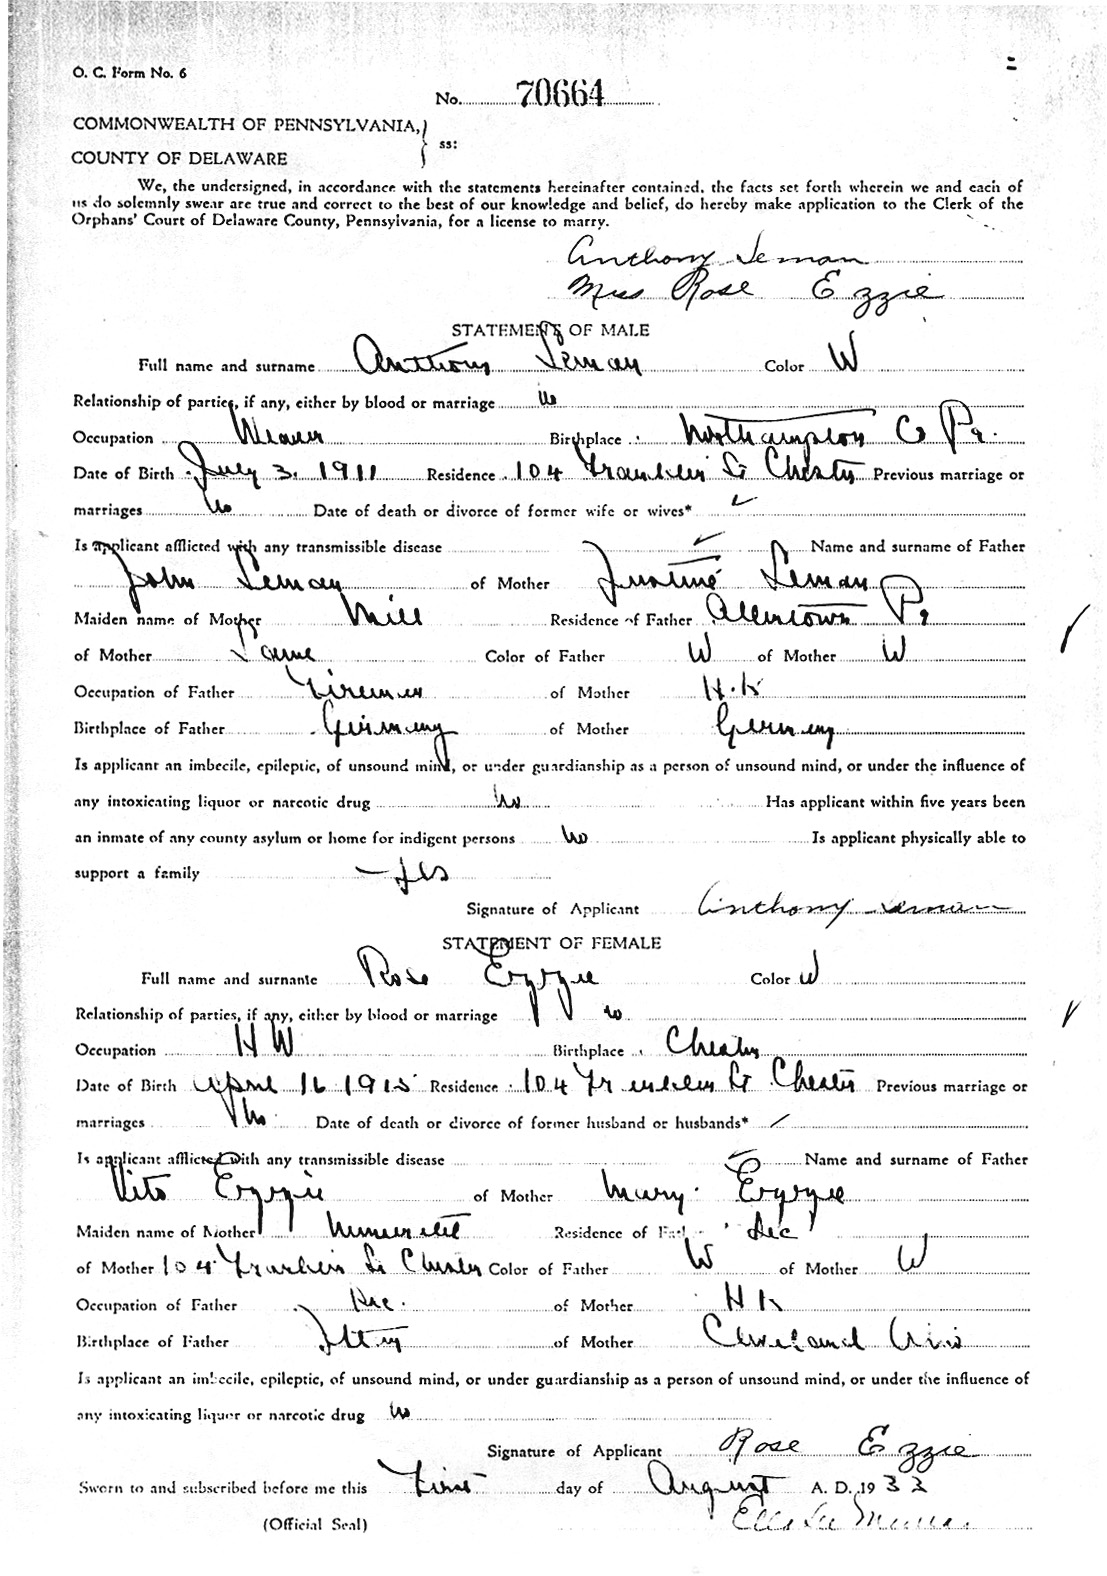 O. C. Form No. 6
No. 70664
COMMONWEALTH OF PENNSYLVANIA,
ss:
COUNTY OF DELAWARE
We, the undersigned, in accordance with the statements hereinafter contained, the facts set forth wherein we and each of
us do solemnly swear are true and correct to the best of our knowledge and belief, do hereby make application to the Clerk of the
Orphans' Court of Delaware County, Pennsylvania, for a license to marry.
Anthony Leman
Miss Rose Ezzie
STATEMENT OF MALE
Full name and surname Anthony Leman Color W
Relationship of parties, if any, either by blood or marriage no
Occupation Weaver Birthplace Northampton Co Pa.
Date of Birth July 3. 1911 Residence 104 Franklin St Chester Previous marriage or
marriages No Date of death or divorce of former wife or wives* ✓
Is applicant afflicted with any transmissible disease ✓ Name and surname of Father
John Leman of Mother Justine Leman
Maiden name of Mother Mill Residence of Father Allentown Pa
of Mother Same Color of Father W of Mother W
Occupation of Father Fireman of Mother H.K
Birthplace of Father Germany of Mother Germany
Is applicant an imbecile, epileptic, of unsound mind, or under guardianship as a person of unsound mind, or under the influence of
any intoxicating liquor or narcotic drug No Has applicant within five years been
an inmate of any county asylum or home for indigent persons No Is applicant physically able to
support a family Yes
Signature of Applicant Anthony Leman
STATEMENT OF FEMALE
Full name and surname Rose Ezzie Color W
Relationship of parties, if any, either by blood or marriage no
Occupation H W Birthplace Chester
Date of Birth April 16 1915 Residence 104 Franklin St Chester Previous marriage or
marriages No Date of death or divorce of former husband or husbands* ✓
Is applicant afflicted with any transmissible disease ✓ Name and surname of Father
Vito Ezzie of Mother Mary Ezzie
Maiden name of Mother Residence of Father Dec
of Mother 104 Franklin St Chester Color of Father W of Mother W
Occupation of Father Dec. of Mother H K
Birthplace of Father Italy of Mother Cleveland Ohio
Is applicant an imbecile, epileptic, of unsound mind, or under guardianship as a person of unsound mind, or under the influence of
any intoxicating liquor or narcotic drug No
Signature of Applicant Rose Ezzie
Sworn to and subscribed before me this First day of August A. D. 1933
(Official Seal)